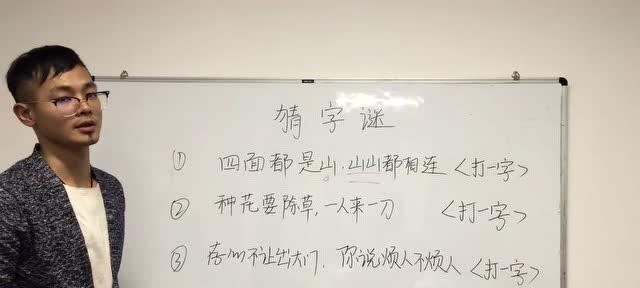 猜字谜
① 四面都是山,山山都相连<打一字>
② 种花要除草,一人来一刀 <打一字>
③ 不让出大门,你说烦人不烦人<打一字>